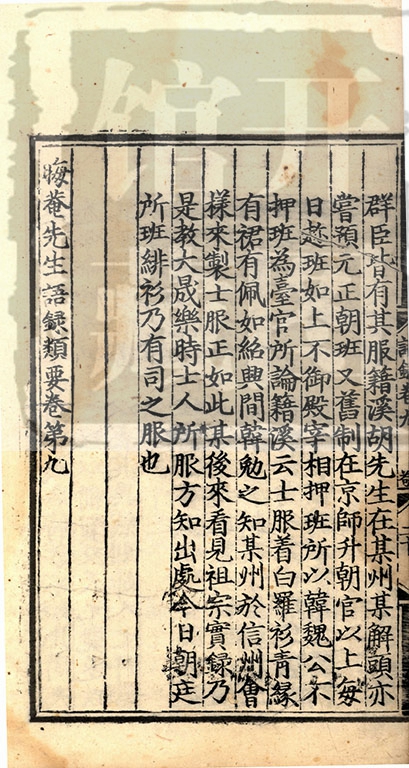 群臣皆有其服籍溪胡先生在某州某解頭亦
嘗預元正朝班又舊制在京師升朝官以上每
日趁班如上不御殿宰相押班所以韓魏公不
押班為臺官所論籍溪云士服着白羅衫青緣
有裙有佩如紹興間韓勉之知某州於信州會
樣來製士服正如此某後來看見祖宗實錄乃
是教大晟樂時士人所服方知出處今日朝廷
所班緋衫乃有司之服也
晦菴先生語録類要卷第九